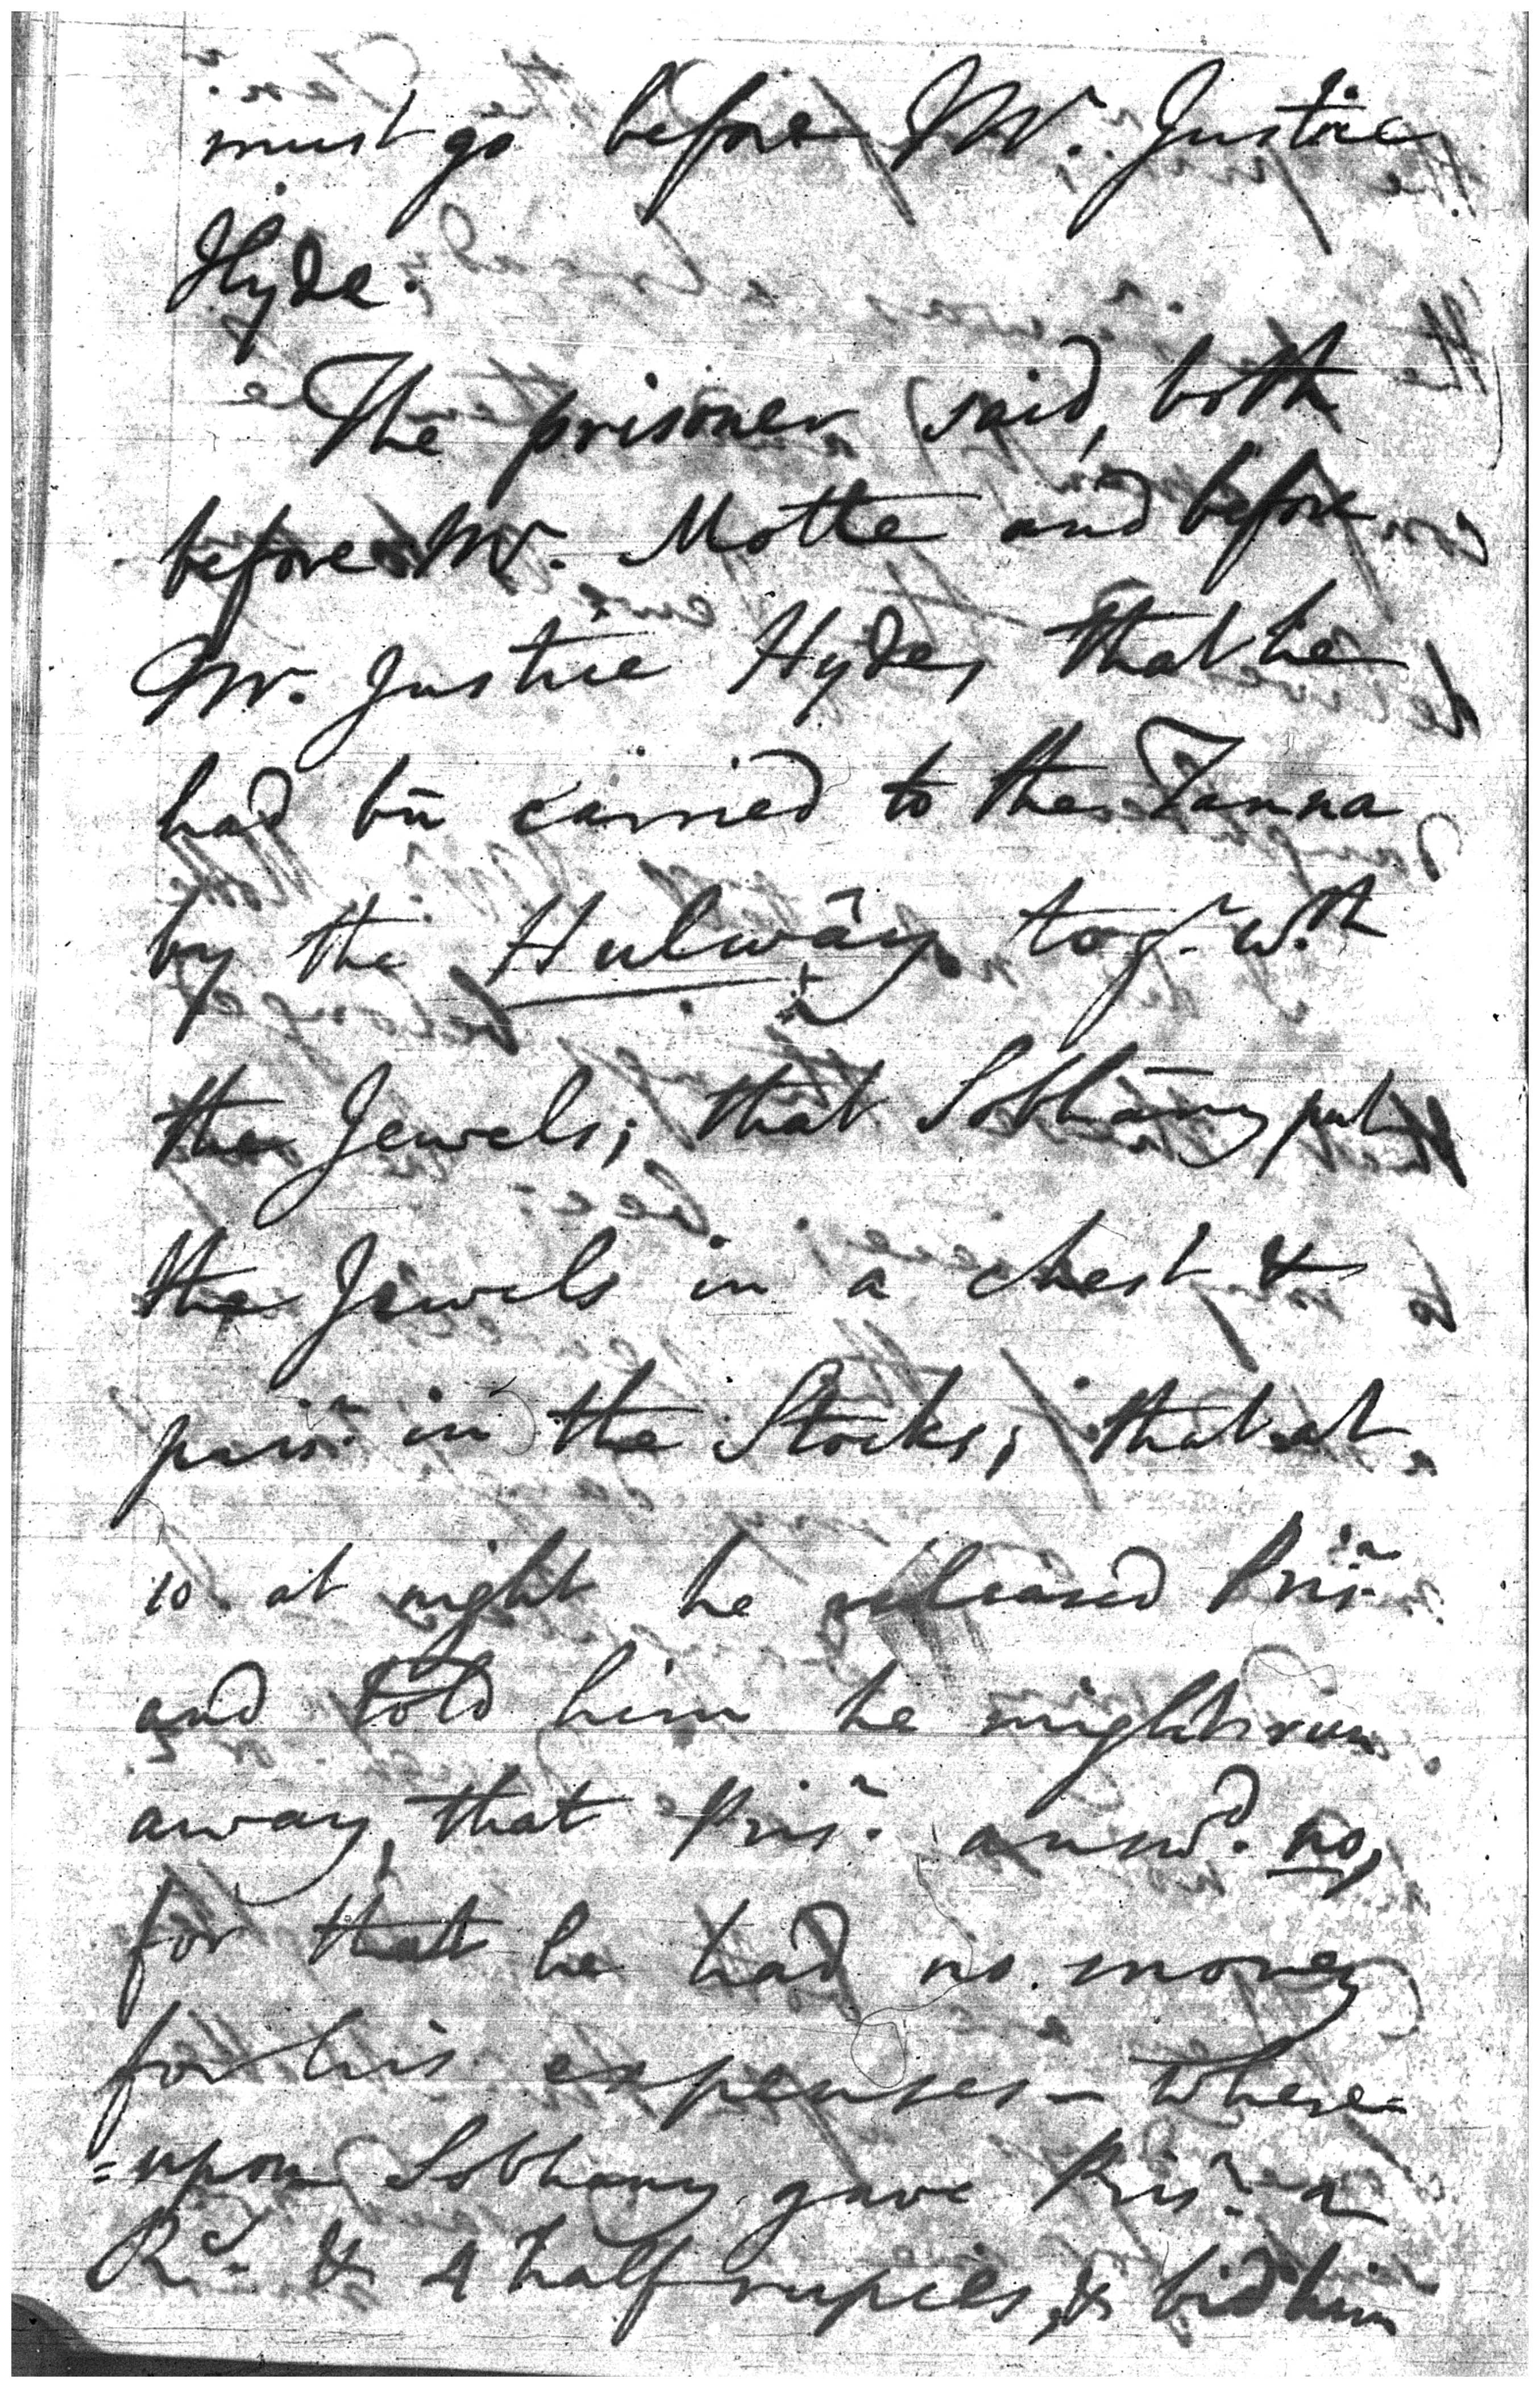 must go before Mr. Justice
Hyde.
The prisoner said, both
before Mr. Motte and before
Mr. Justice Hyde, that he
had bn̄ carried to the Tanna
by the Hulwāy togr. wth
the Jewels; that Sobhāny put
the Jewels in a chest &
prisr. in the Stocks; that at
10 at night he released Prisr.
and told him he might run
away, that Prisr. answd. no,
for that he had no money
for his expenses – where=
=upon Sobhany gave Prisr. a
Re. & 4 half rupees, & bid him